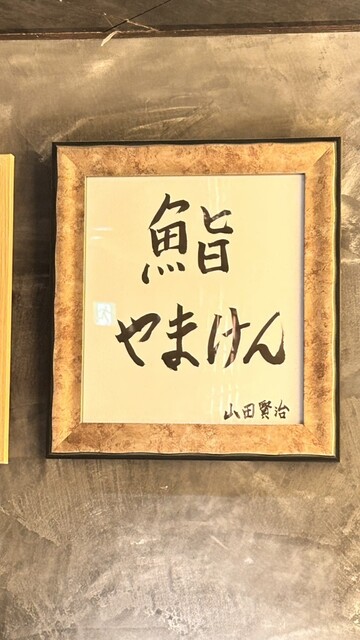 鮨
やまけん
山田賢治